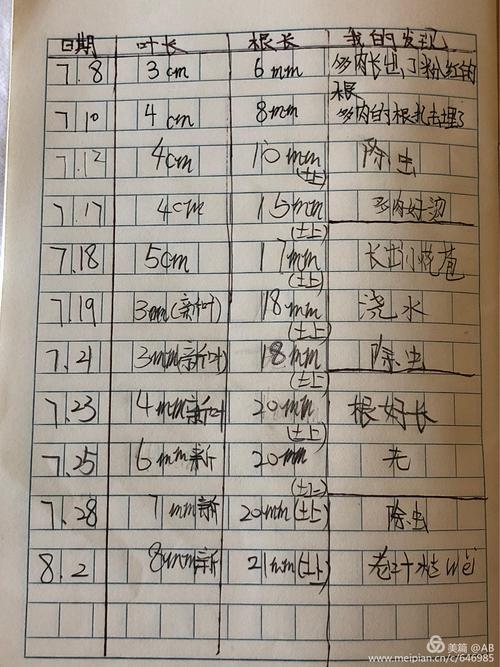 日期 叶长 根长 我的发现
7.8 3cm 6mm 多肉长出了粉红的根
7.10 4cm 8mm 多肉的根扎去埋了
7.12 4cm 10mm(土上) 除虫
7.17 4cm 15mm(土上) 多肉好
7.18 5cm 17mm(土上) 长出了花苞
7.19 3mm(新叶) 18mm(土上) 浇水
7.21 3mm(新叶) 18mm(土上) 除虫
7.23 4mm新叶 20mm(土上) 根好长
7.25 6mm新 20mm(土上) 无
7.28 7mm新 20mm(土上) 除虫
8.2 8mm新 21mm(土上) 老叶枯wěi
美篇 @AB
www.meipian.cn/c/646985